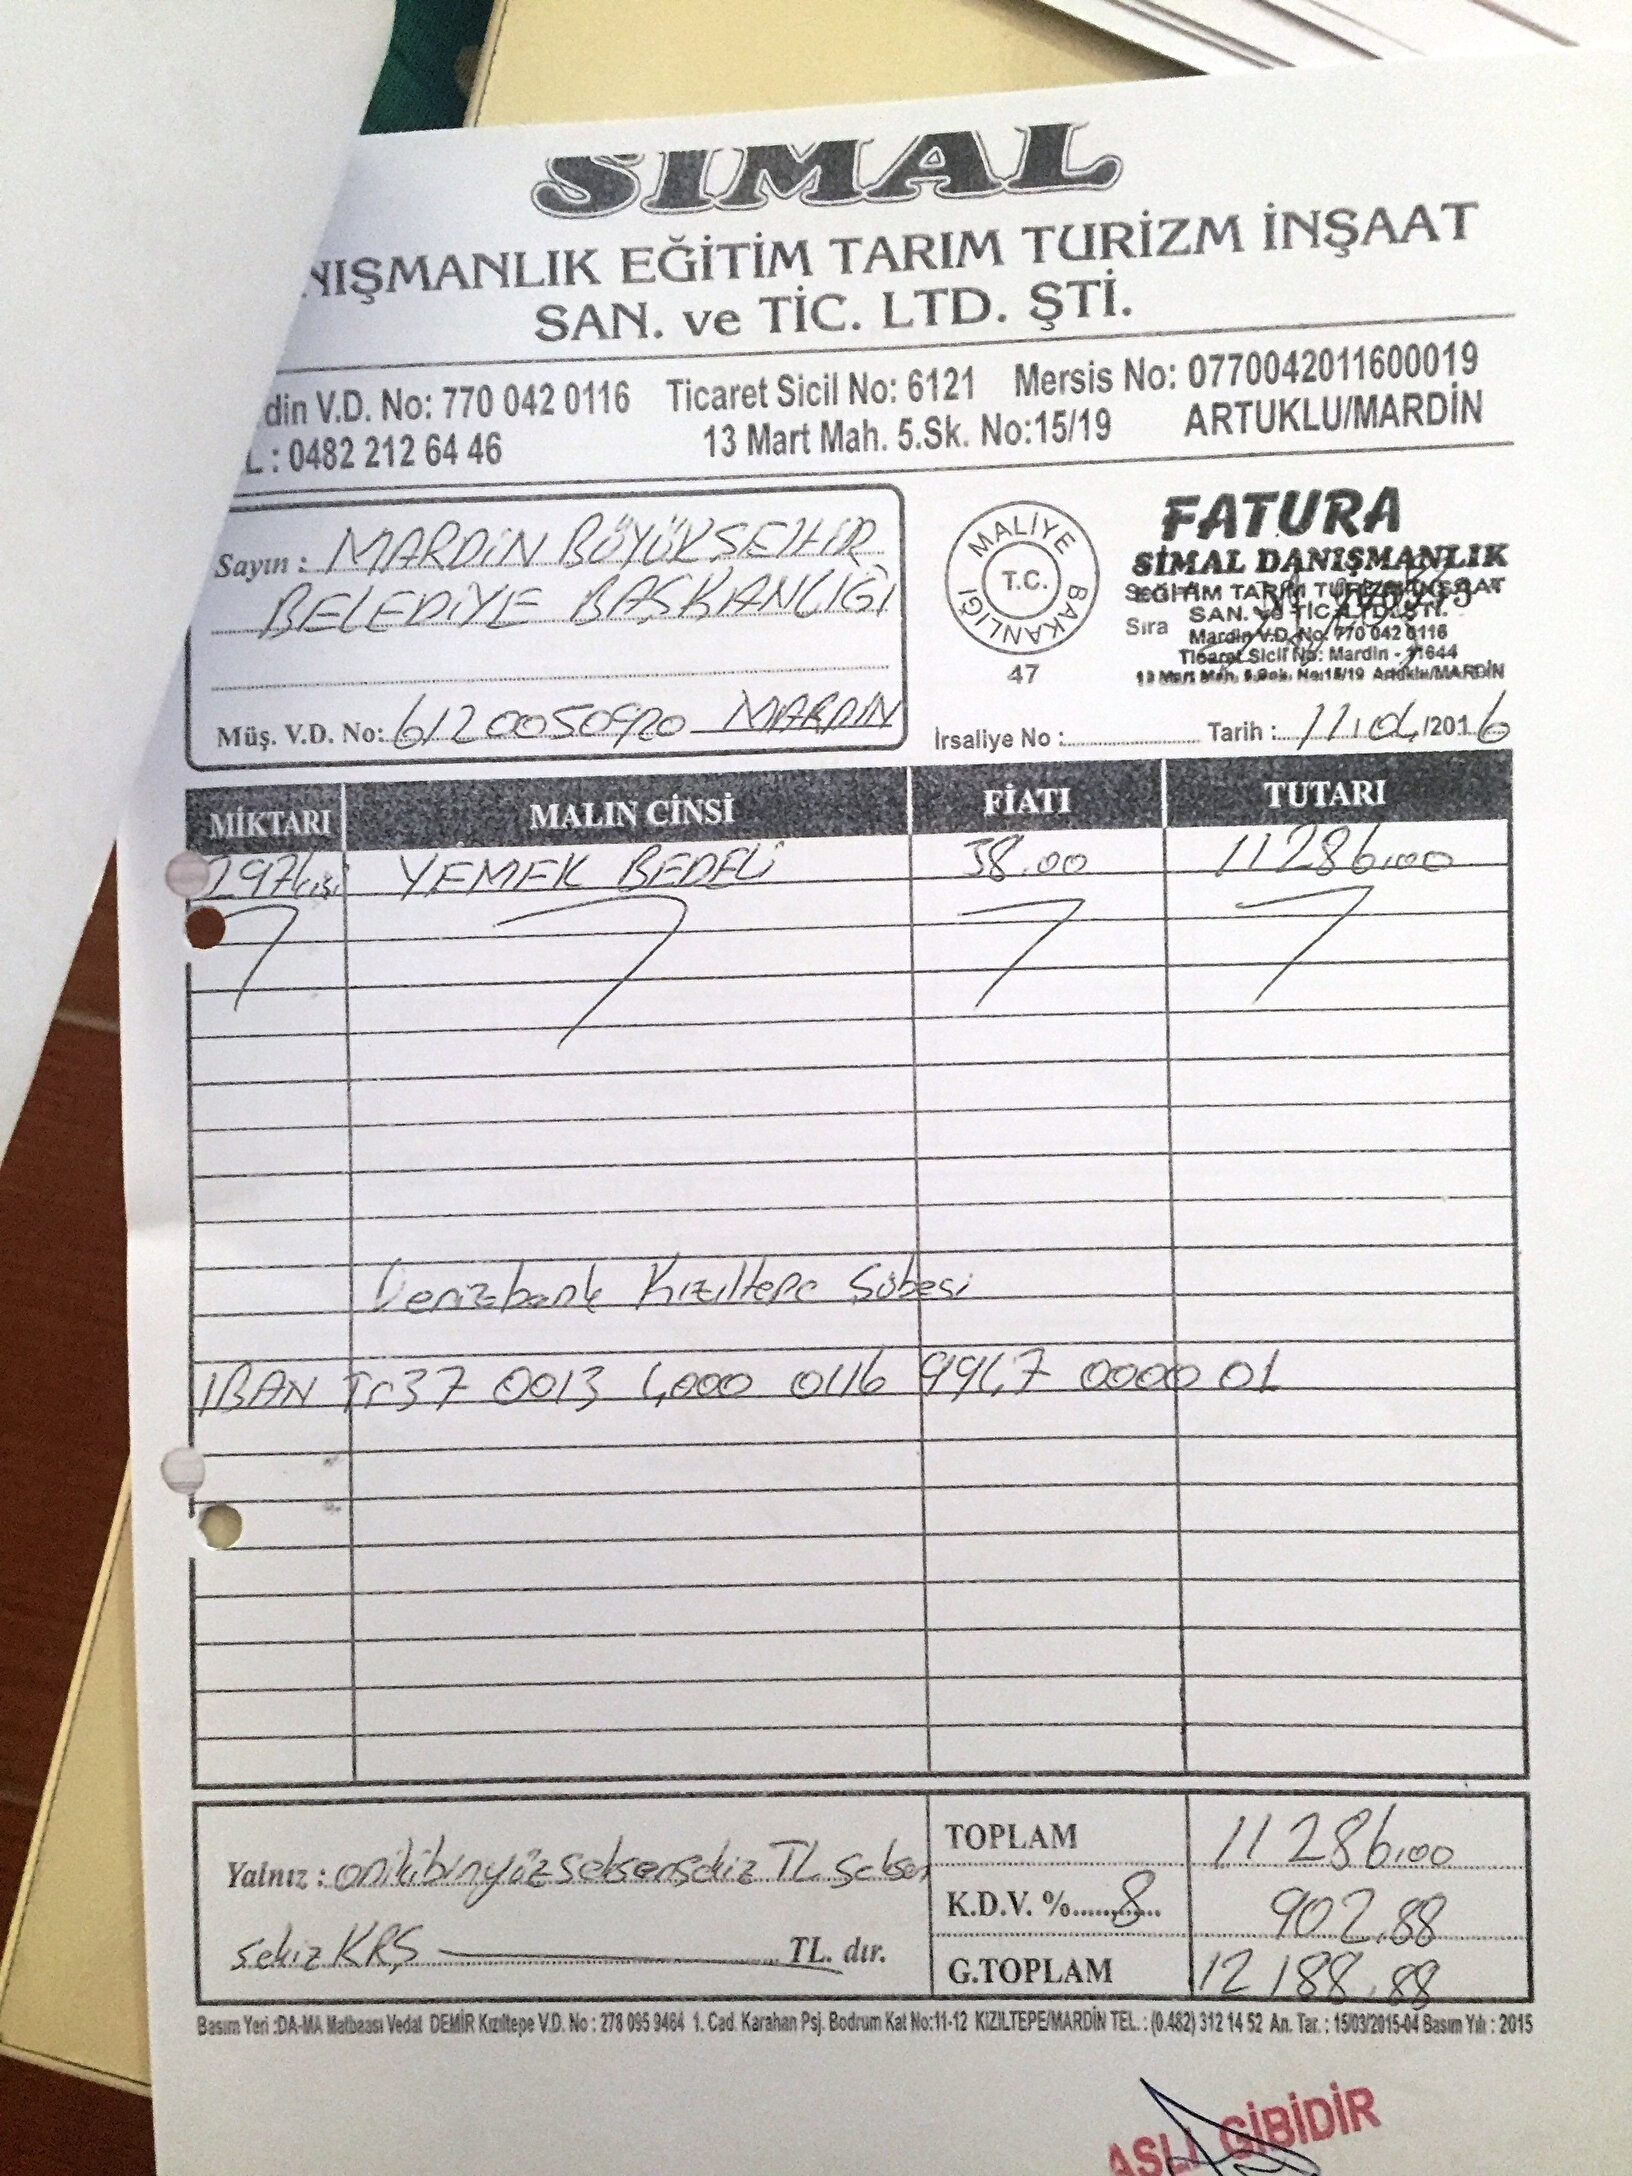 SİMAL
NIŞMANLIK EĞİTİM TARIM TURİZM İNŞAAT
SAN. ve TİC. LTD. ŞTİ.
din V.D. No: 770 042 0116 Ticaret Sicil No: 6121 Mersis No: 0770042011600019
L : 0482 212 64 46 13 Mart Mah. 5.Sk. No:15/19 ARTUKLU/MARDİN
Sayın : MARDİN BÜYÜKŞEHİR
BELEDİYE BAŞKANLIĞI
Müş. V.D. No: 6120050920 MARDİN
MALİYE BAKANLIĞI
T.C.
47
FATURA
SİMAL DANIŞMANLIK
EĞİTİM TARIM TURİZM İNŞAAT
SAN. ve TİC. LTD. ŞTİ.
Sıra
Mardin V.D. No: 770 042 0116
Ticaret Sicil No: Mardin - 11644
13 Mart Mah. 5.Sok. No:15/19 Artuklu/MARDİN
İrsaliye No : Tarih : 11.04/2016
MİKTARI MALIN CİNSİ FİATI TUTARI
297kişi YEMEK BEDELİ 38.00 11286,00
Denizbank Kızıltepe Şübesi
IBAN Tr37 0013 4000 0116 9947 0000 01
Yalnız : onikibinyüzseksensekiz TL seksen
sekiz KRŞ TL. dır.
TOPLAM 11286,00
K.D.V. % 8 902,88
G.TOPLAM 12188,88
Basım Yeri :DA-MA Matbaası Vedat DEMİR Kızıltepe V.D. No : 278 095 9464 1. Cad. Karahan Psj. Bodrum Kat No:11-12 KIZILTEPE/MARDİN TEL. : (0.482) 312 14 52 An. Tar. : 15/03/2015-04 Basım Yılı : 2015
ASLI GİBİDİR